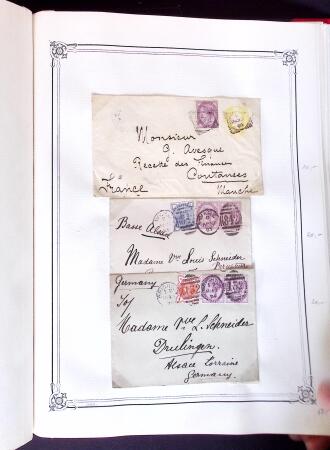 Monsieur
B. Avesque
Recette des Finances
Coutances
Manche
France
Basse Alsace
Madame Vve Louis Schneider
Germany
Madame Vve L. Schneider
Drulingen
Alsace Lorraine
Germany